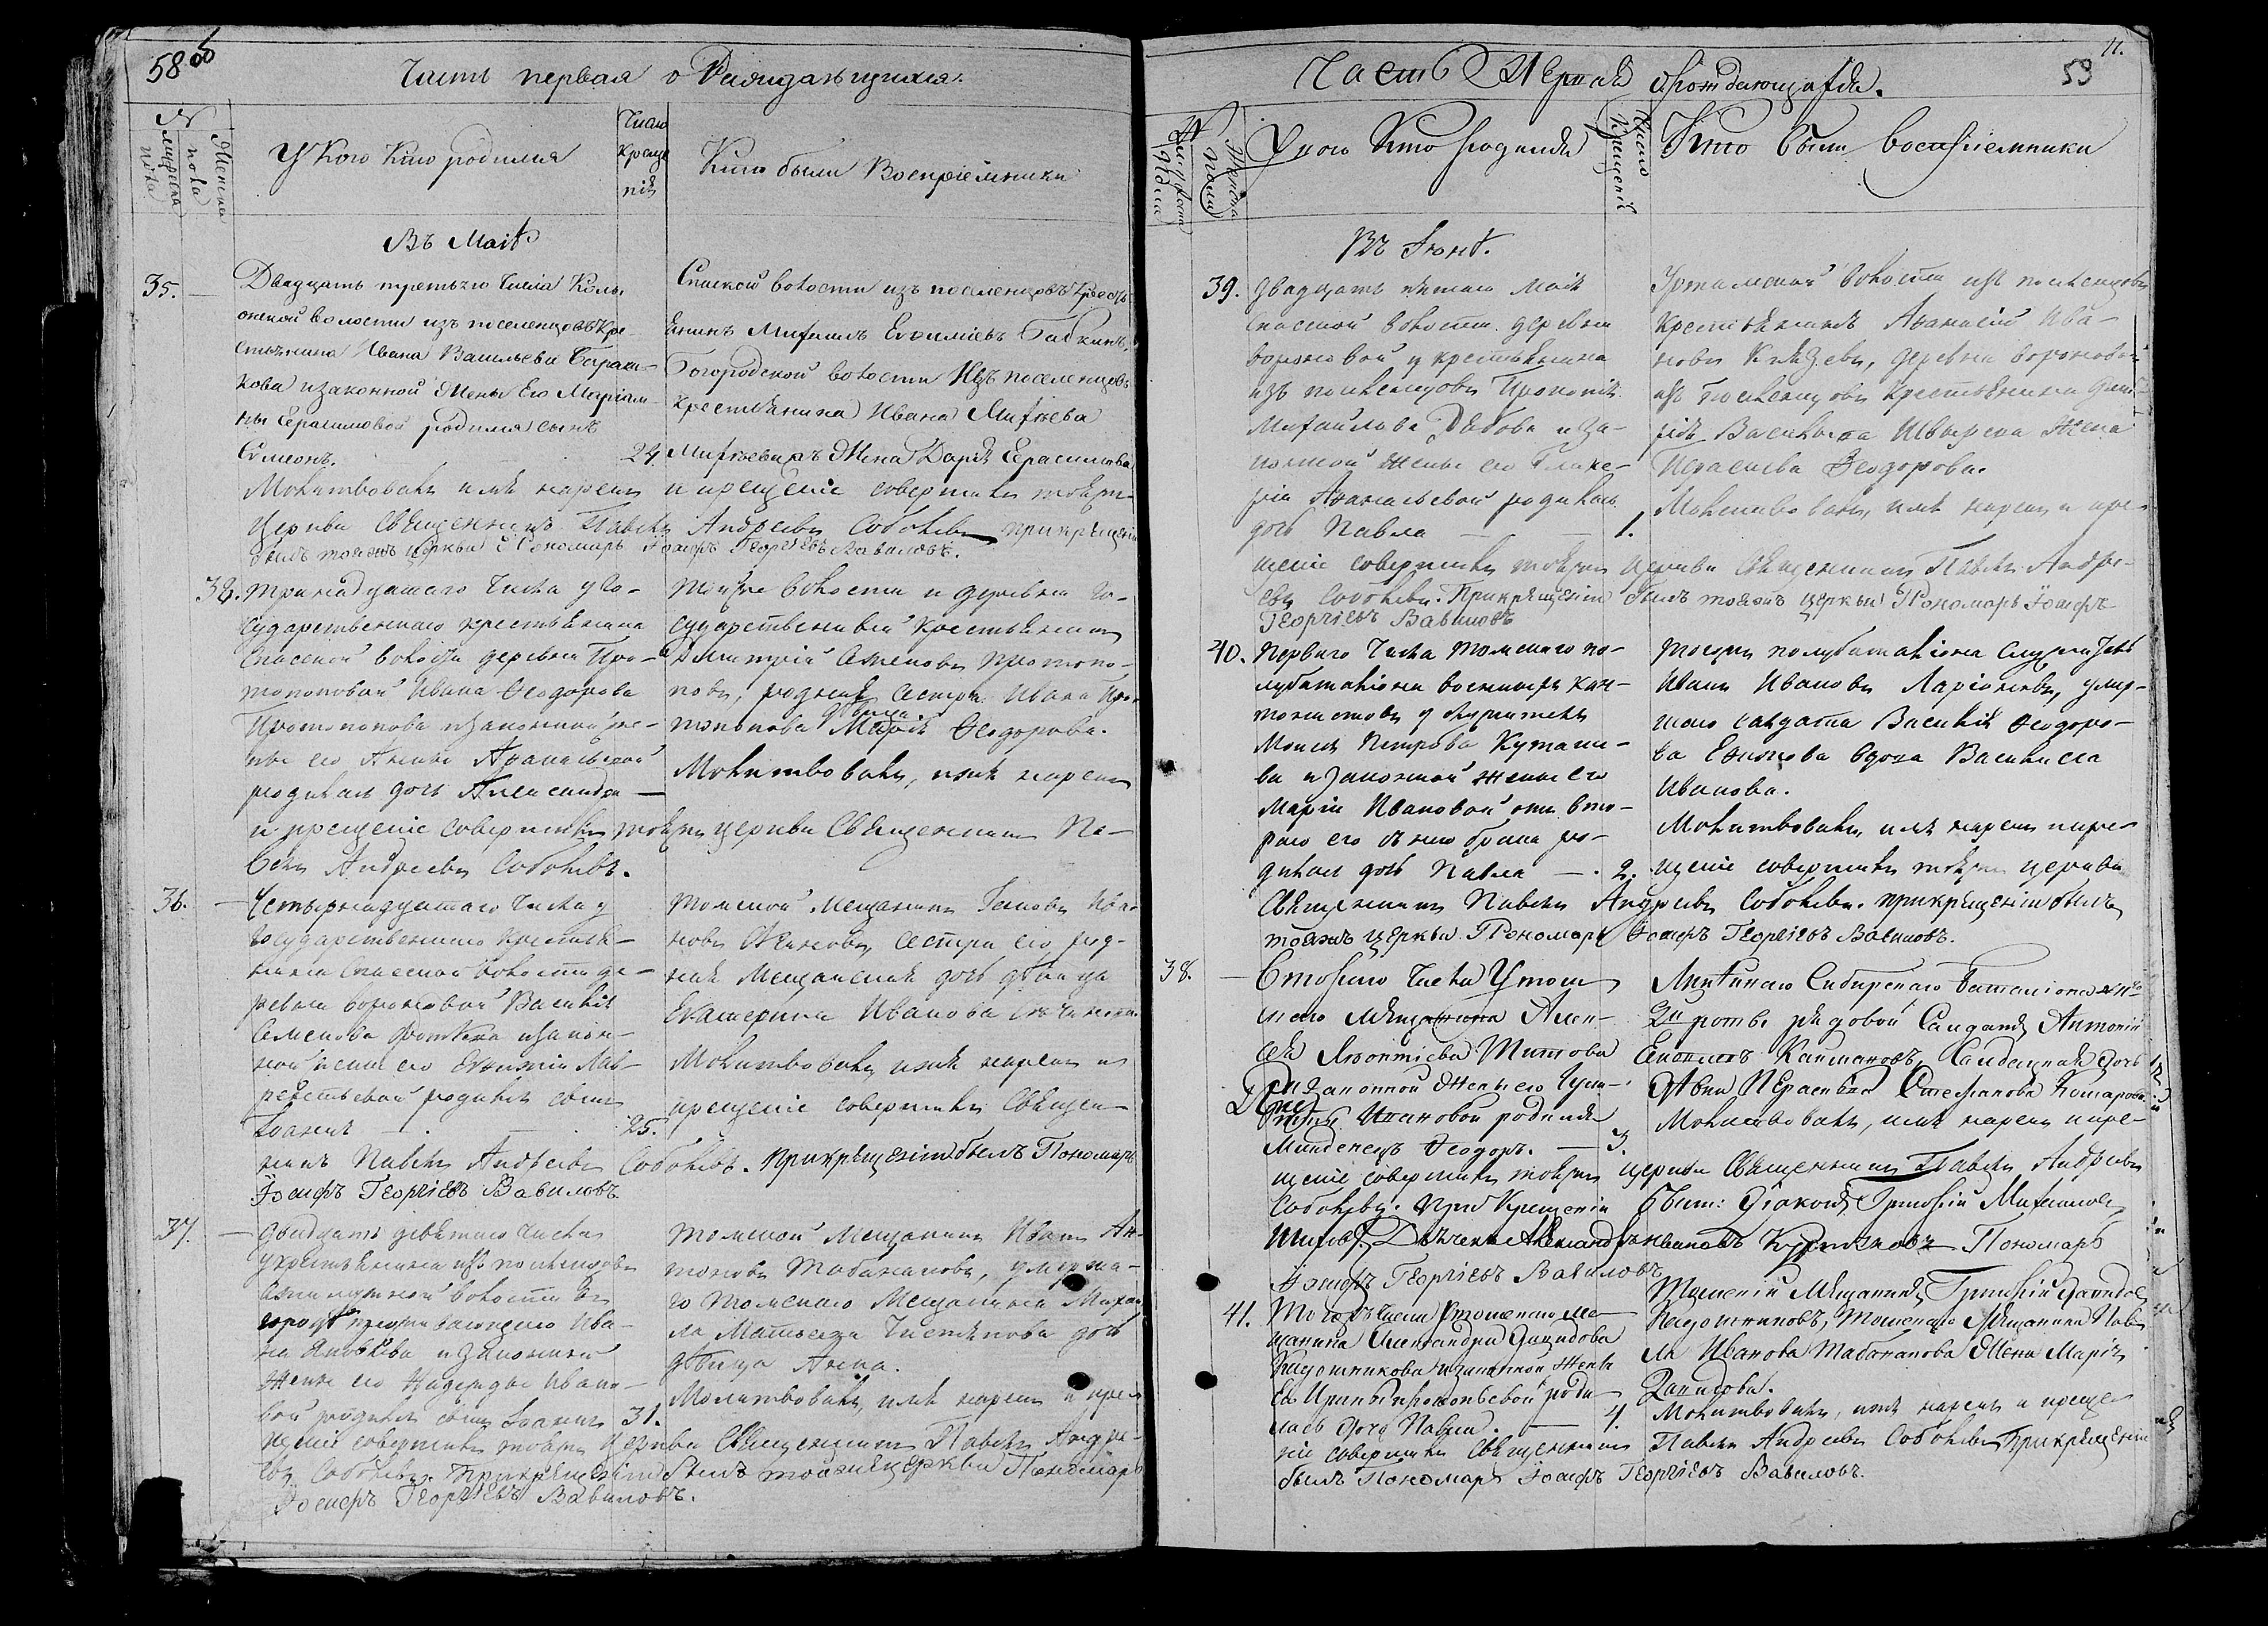 58 об
Часть первая о Раждающихся.
№
Мужеска пола
Женска пола
У Кого Кто родился
Число Креще нія
Кто были Воспріемники
Въ Маіѣ
35. Двадцать третьяго Числа
волости изъ поселенцовъ Кре-
стьянина Ивана Васильева Бараш-
кова и законной Жены Его Маріам-
ны Герасимовой родился сынъ
Симеонъ. 24.
Спаской волости изъ поселенцовъ Кресть
янинъ Михаилъ Евфиміевъ Бабкинъ,
Богородской волости Изъ поселенцовъ
крестьянина Ивана Михѣева
Жена Дарья Герасимова
Молитвовалъ имя нарекъ и крещеніе совершилъ тоя же
Церкви Священникъ Павелъ Андреевъ Соболевъ при крещеніи
былъ тояжъ Церкви Пономарь Іосифъ Георгіевъ Вавиловъ.
38. Тринадцатаго Числа у Го-
сударственнаго крестьянина
Спаской волости деревни Про-
топоповой Ивана Ѳеодорова
Протопопова и законной же-
ны его Анны Аѳанасьевой
родилась дочь Александра —
Той же волости и деревни Го-
сударственный Крестьянинъ
Димитрій Семеновъ Протопо-
повъ, родная сестра Ивана Про-
топопова дѣвица Марія Ѳеодорова.
Молитвовалъ, имя нарекъ
и крещеніе совершилъ тояже церкви Священникъ Па-
велъ Андреевъ Соболевъ.
36. — Четырнадцатаго Числа у
Государственнаго крестья-
нина Спаской волости де-
ревни Вороновой Василія
Семенова и закон-
ной жены его Евѳиміи Лав-
рентьевой родился сынъ
Іоаннъ — 25.
Томской Мещанинъ Ива-
новъ сестра его род-
ная Мещанская дочь дѣвица
Екатерина Иванова
Молитвовалъ, имя нарекъ и
крещеніе совершилъ Священ-
никъ Павелъ Андреевъ Соболевъ. При крещеніи былъ Пономарь
Іосифъ Георгіевъ Вавиловъ.
37. — Двадцать девятаго числа
у крестьянина изъ поселенцовъ
волости въ
городѣ проживающаго Ива-
на Яковлева и законной
жены его Надежды Ивано-
вой родился сынъ Іоаннъ 31.
Томской Мещанинъ Иванъ Ан-
тоновъ Табанаковъ, умерша-
го Томскаго Мещанина Михаи
ла Матвеева дочь
дѣвица Анна.
Молитвовалъ, имя нарекъ и кре-
щеніе совершилъ тояже Церкви Священникъ Павелъ Андре-
евъ Соболевъ. При крещеніи былъ тояже церкви Пономарь
Іосифъ Георгіевъ Вавиловъ.
11.
59
Часть Первая о раждающихся.
№
Мужеска пола
Женска пола
У кого Кто родился
Число Крещеній
Кто были воспріемники
Въ Іюнѣ.
39. Двадцать пятаго Маія
Спаской волости деревни
Вороновой у крестьянина
изъ поселенцовъ Прокопія
Михайлова Дѣдова и за-
конной жены его Глике-
ріи Аѳанасьевой родилась
дочь Павла — 1.
волости изъ поселенцовъ
крестьянинъ Аѳанасій Ива-
новъ Князевъ, деревни Вороновой
изъ Поселенцовъ Крестьянина
Васильева жена
Ѳеодорова.
Молитвовалъ, имя нарекъ и кре-
щеніе совершилъ тояже Церкви Священникъ Павелъ Андре-
евъ Соболевъ. При крещеніи былъ тояжъ церкви Пономарь Іосифъ
Георгіевъ Вавиловъ
40. Перваго Числа Томскаго по-
лубаталіона военныхъ кан-
тонистовъ у служителя
Моисея Петрова
и законной жены его
Маріи Ивановой отъ вто-
раго его съ нею брака ро-
дилась дочь Павла — 2.
Тогоже полубаталіона служитель
Иванъ Ивановъ Ларіоновъ, умер-
шаго солдата Василія Ѳеодоро-
ва вдова Василиса
Иванова.
Молитвовалъ, имя нарекъ и кре-
щеніе совершилъ тояже церкви
Священникъ Павелъ Андреевъ Соболевъ. При крещеніи былъ
тояжъ церкви Пономарь Іосифъ Георгіевъ Вавиловъ.
38. — Втораго Числа У Томс
каго Мѣщанина Алек-
сѣя Леонтіева Титова
и законной Жены его
Ивановой родился
Младенецъ Ѳеодоръ. — 3.
Линѣйнаго Сибирскаго Баталіона №
2й роты рядовой Солдатъ Антоній
Солдацкая дочь
Дѣвица Степанова Комарова.
Молитвовалъ, имя нарекъ и кре-
щеніе совершилъ тояже церкви Священникъ Павелъ Андреевъ
Соболевъ. При Крещеніи были: Діаконъ Григорій Михаиловъ
Дьячекъ Александръ Ивановъ Пономарь
Іосифъ Георгіевъ Вавиловъ
41. Тогожъ Числа У Томскаго Мѣ-
щанина Александра Давидова
и законной Жены
Его Ирины Прокопьевой роди-
лась Дочь Павла. — 4.
Томскій Мѣщанинъ Григорій Давидовъ
Томскаго Мѣщанина Пав
ла Иванова Табанакова Жена Марія
Давидова.
Молитвовалъ, имя нарекъ и креще
ніе совершилъ Священникъ Павелъ Андреевъ Соболевъ при крещеніи
былъ Пономарь Іосифъ Георгіевъ Вавиловъ.